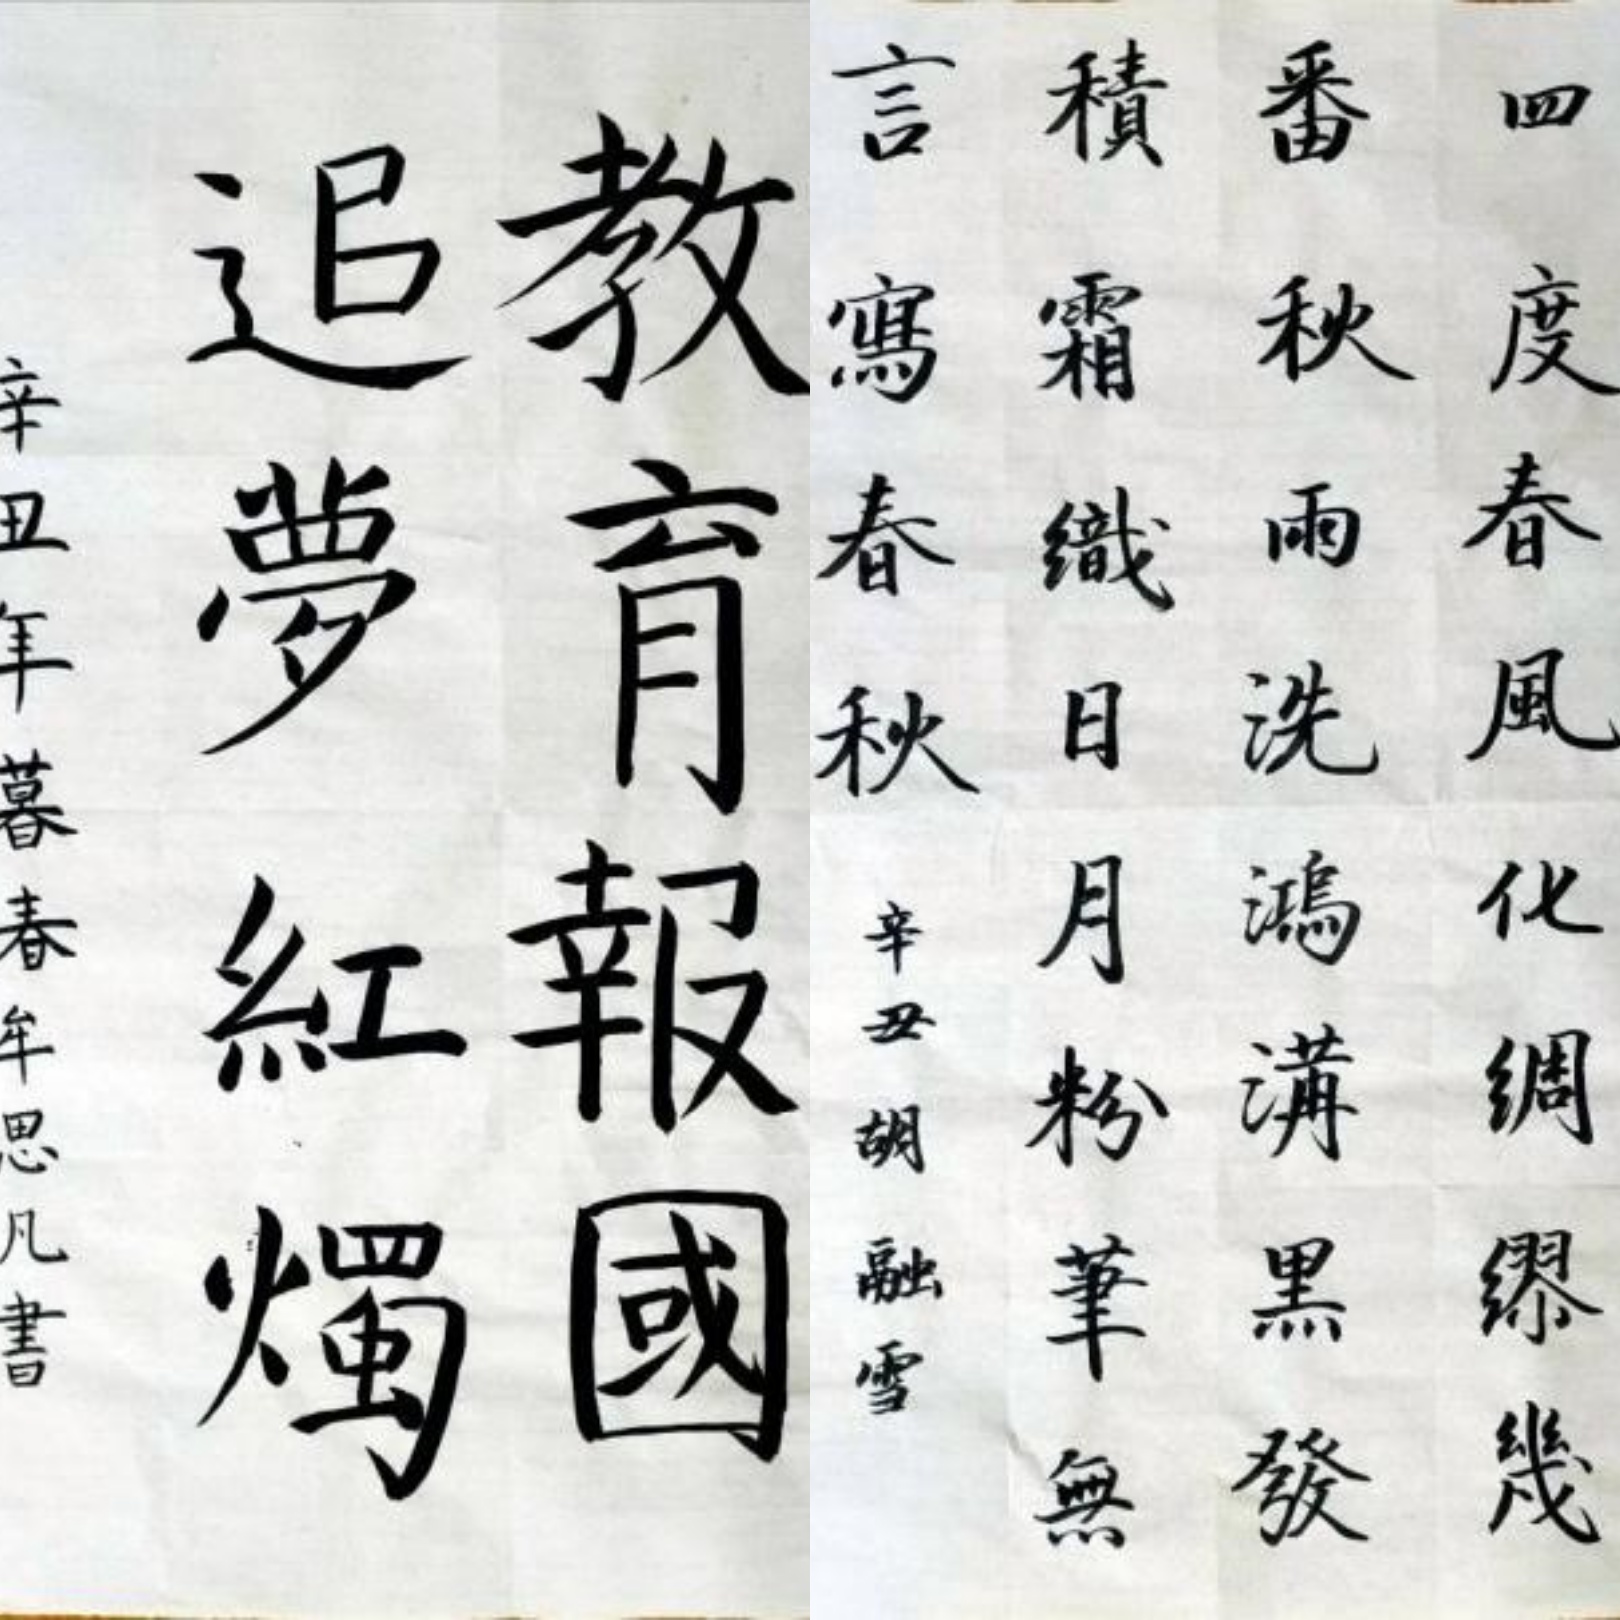 教育報國
追夢紅燭
辛丑年暮春牟思凡書
四度春風化綢繆幾
番秋雨洗鴻溝黑發
積霜織日月粉筆無
言寫春秋
辛丑胡融雪